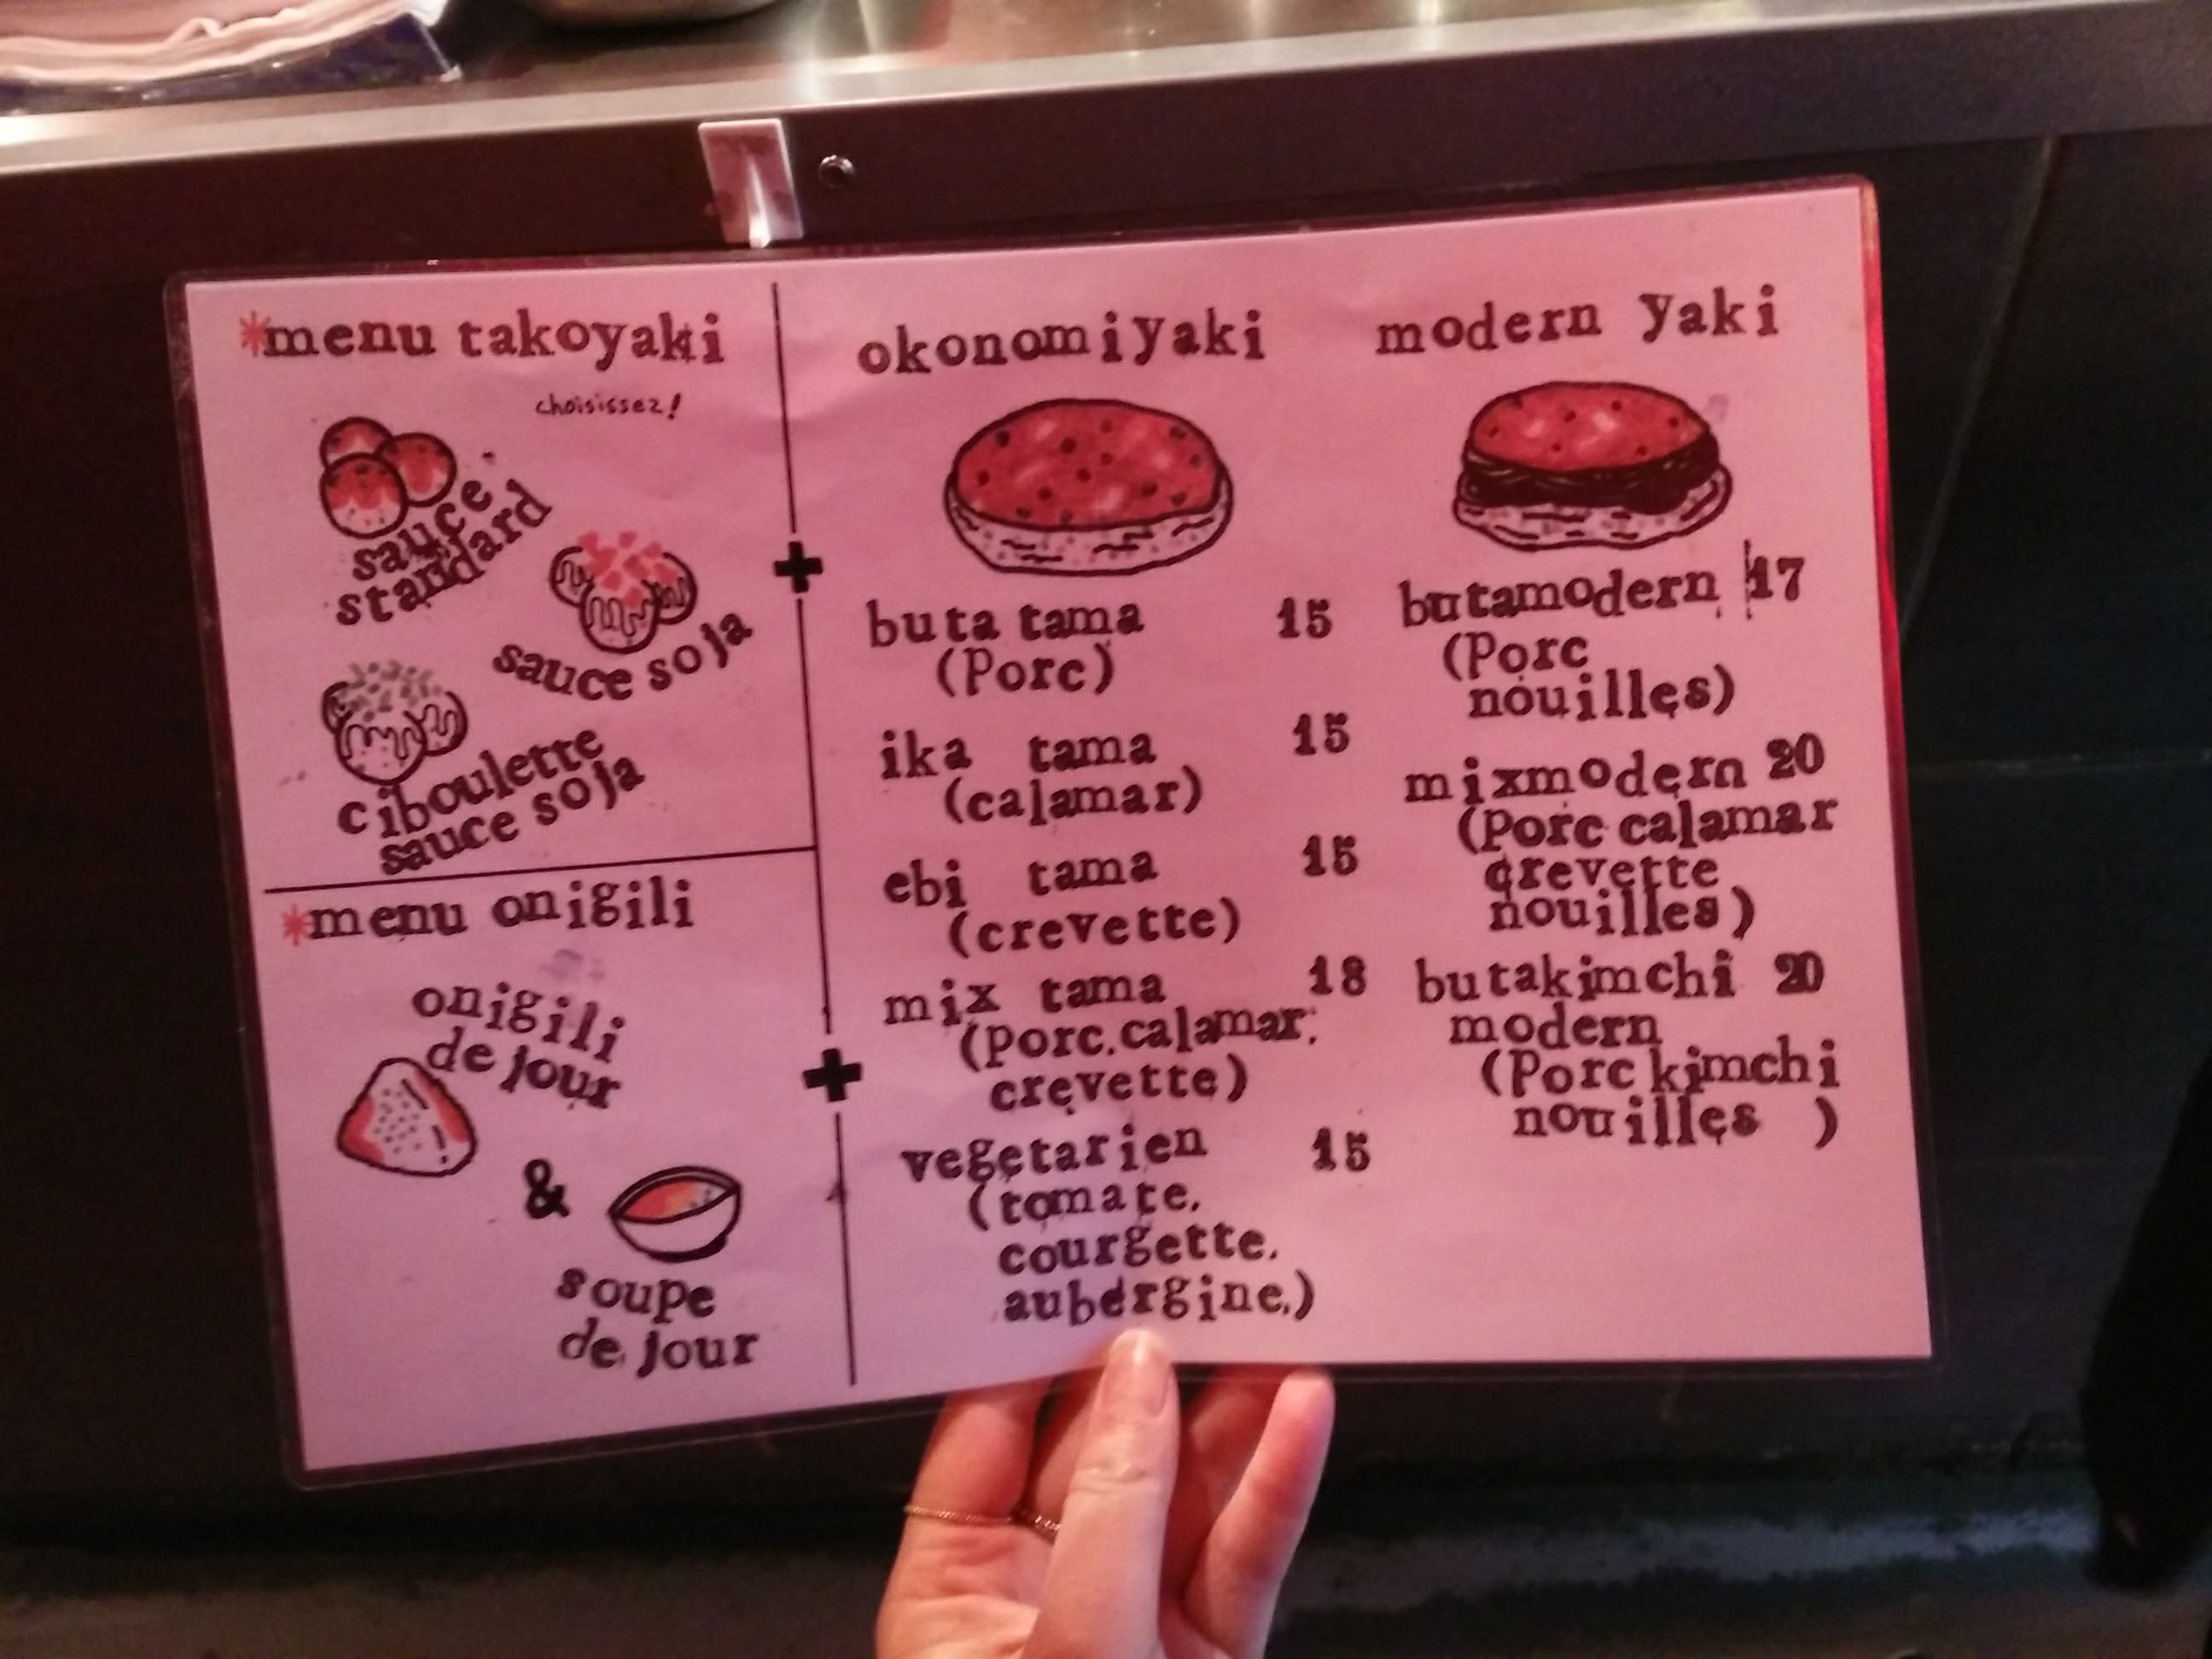 *menu takoyaki
choisissez!
sauce
standard
sauce soja
ciboulette
sauce soja
*menu onigili
onigili
de jour
&
soupe
de jour
+
+
okonomiyaki
buta tama 15
(Porc)
ika tama 15
(calamar)
ebi tama 15
(crevette)
mix tama 18
(porc.calamar.
crevette)
vegetarien 15
(tomate.
courgette.
aubergine.)
modern yaki
butamodern 17
(Porc
nouilles)
mixmodern 20
(Porc calamar
crevette
nouilles)
butakimchi 20
modern
(Porc kimchi
nouilles )